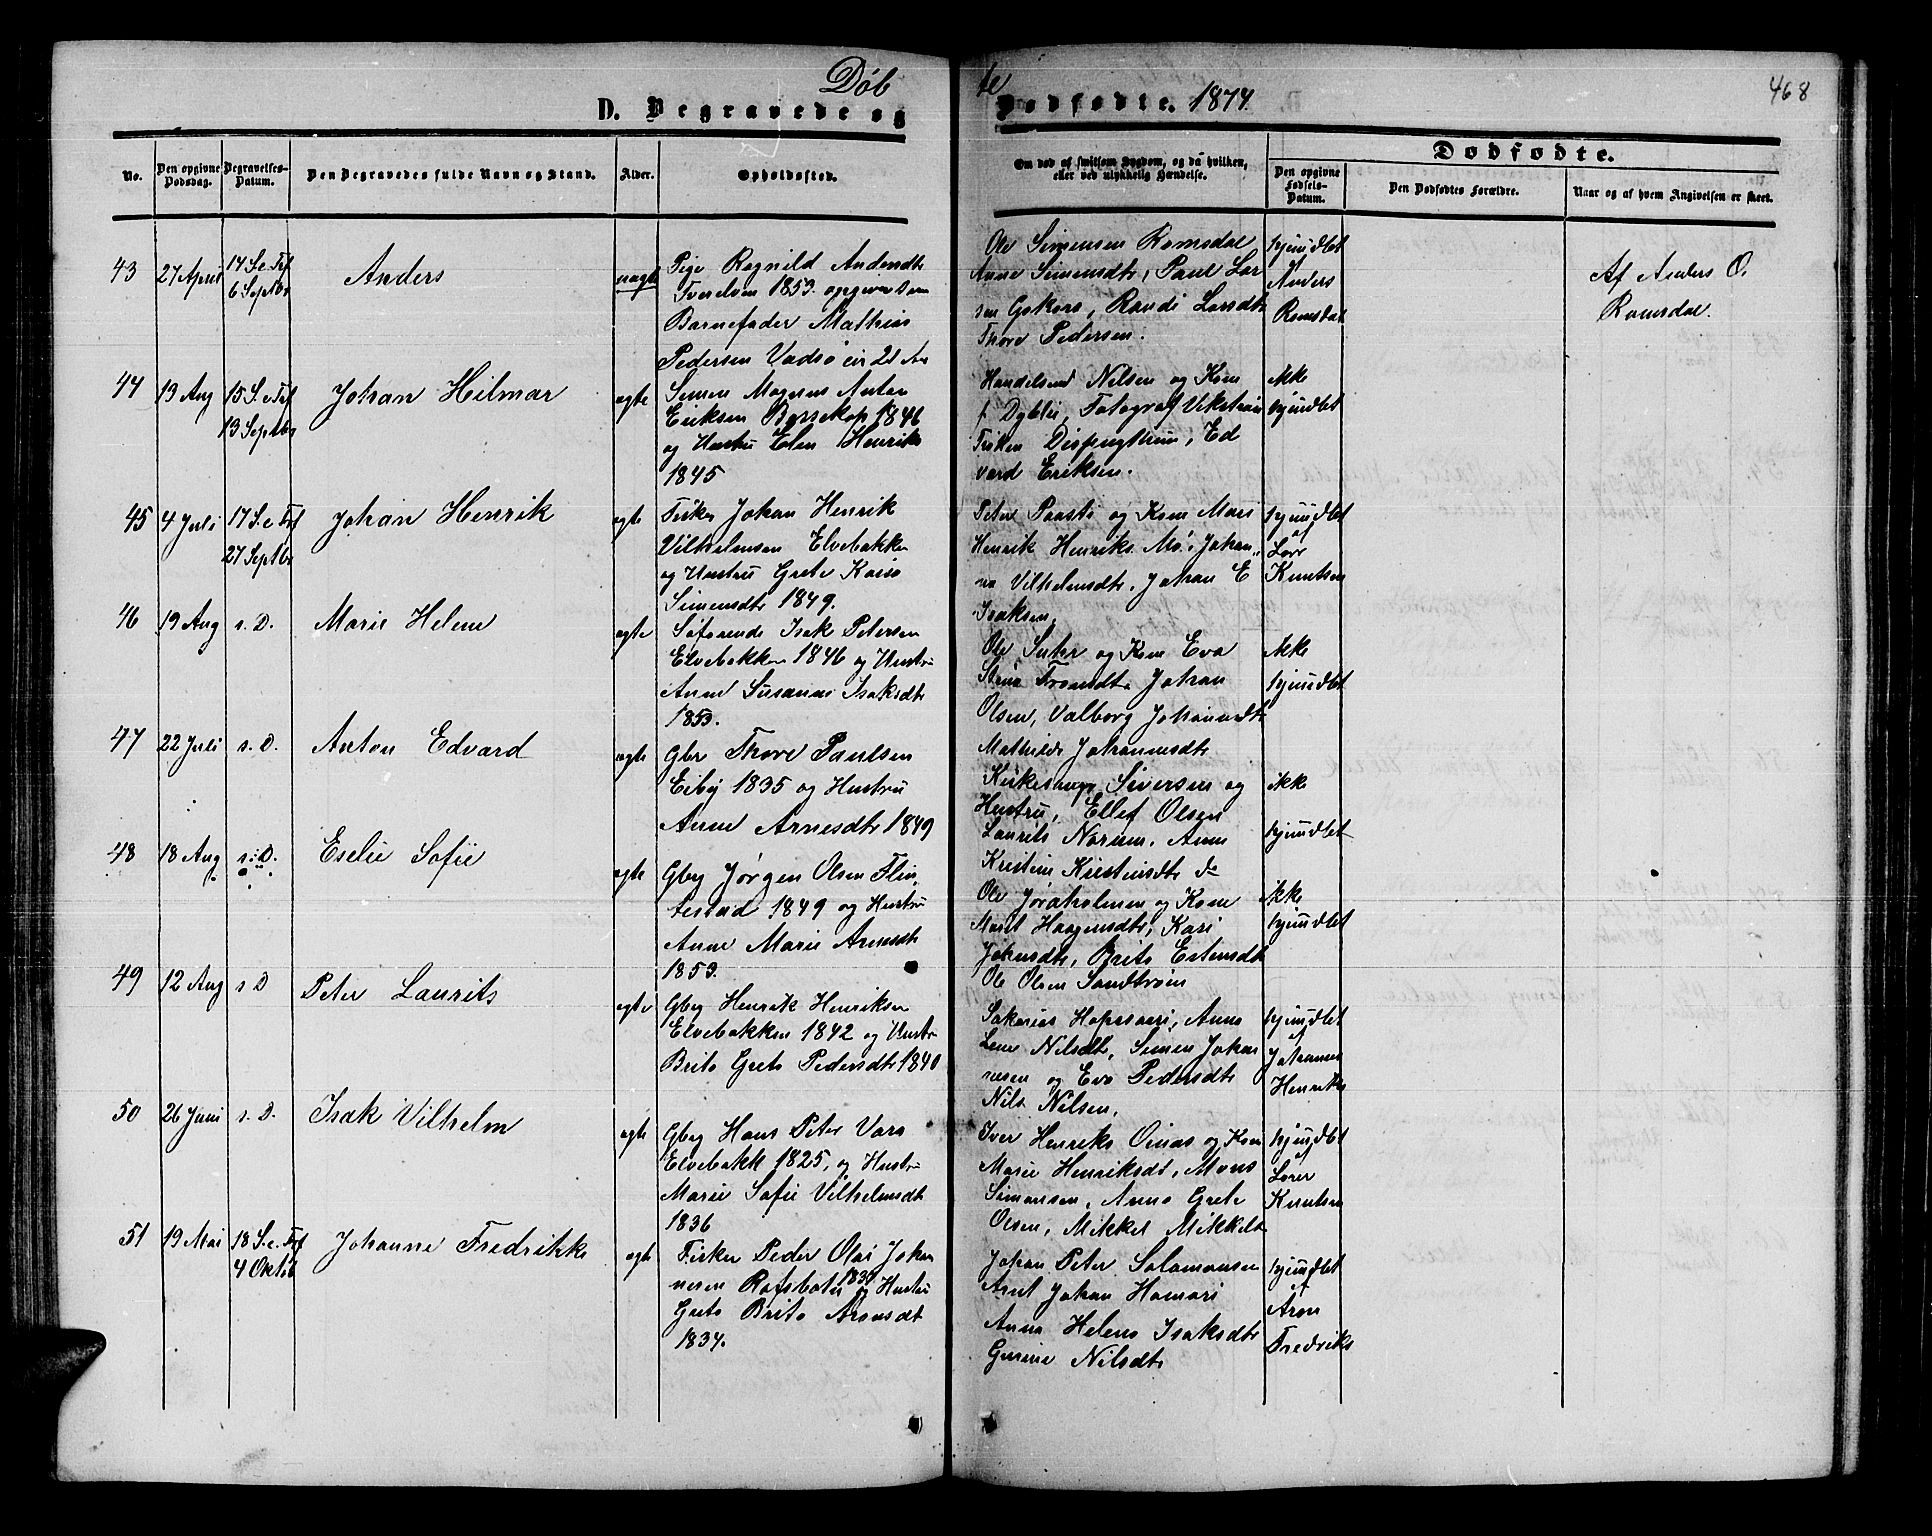 Døbte
468
D. Begravede og Dødfødte. 1874
No.
Den opgivne Dødsdag.
Begravelses-Datum.
Den Begravedes fulde Navn og Stand.
Alder.
Opholdssted.
Om død af smitsom Sygdom, og da hvilken, eller ved ulykkelig Hændelse.
Dødfødte.
Den opgivne Fødsels-Datum.
Den Dødfødtes Forældre.
Naar og af hvem Angivelsen er skeet.
43 27 April 14 S. e. Tref 6 Septbr Anders uægte
Pige Ragnild Andersdtr
Tverelven 1853. opgiver som
Barnefader Mathias
Pedersen Vadsø cir 21 Aar
Ole Simensen Romsdal
Anne Simensdtr, Paul Lar
sen Gokors, Randi Larsdtr
Thore Pedersen.
hjemdbt
Anders
Romsdal
Af Anders O.
Romsdal.
44 13 Aug 15 S. e. Tref 13 Septbr Johan Hilmar ægte
Simen Magnus Anton
Eriksen Bossekop 1846
og Hustru Elen Henriks
1845
Handelsmd Nilsen og Kone
f. Dyblie, Fotograf Vikstrøm
Frøken Dispugthum, Ed
vard Eriksen.
ikke
hjemdbt
45 4 Juli 17 S. e. Tref 27 Septbr Johan Henrik ægte
Fisker Johan Henrik
Vilhelmsen Elvebakken
og Hustru Grete Kaisa
Simensdtr 1849.
Peter Paasti og Kone Mari
Henrik Henriks. Mo, Johan
na Vilhelmsdtr, Johan E
Isaksen.
hjemdbt
af
Lars
Knutsen
46 19 Aug s. D. Marie Helene ægte
Søfarende Isak Petersen
Elvebakken 1846 og Hustru
Anne Susanna Isaksdtr
1853.
Ole Suhr og Kone Eva
Stina Fransdtr Johan
Olsen, Valborg Johannesdtr
Mathilde Johannesdtr
ikke
hjemdbt
47 22 Juli s. D. Anton Edvard ægte
Gbr Thore Paulsen
Eiby 1835 og Hustru
Anne Arnesdtr 1849
Kirkesanger Siversen og
Hustru, Ellef Olsen
Laurits Norum, Anne
Kristine Kirstensdtr do
ikke
hjemdbt
48 18 Aug s. D. Eselie Sofie ægte
Gbr Jørgen Olsen Flin
testad 1849 og Hustru
Anne Marie Arnesdtr
1853.
Ole Jøraholmen og Kone
Marit Haagensdtr, Kari
Johnsdtr, Brite Estensdtr
Ole Olsen Sandtrøm
ikke
hjemdbt
49 12 Aug s. D Peter Laurits ægte
Gbr Henrik Henriksen
Elvebakken 1842 og Hustru
Brita Greta Pedersdtr 1840
Sakarias Hapesaari, Anna
Lene Nilsdtr, Simen Johan
nesen og Eva Pedersdtr
Nils Nilsen.
hjemdbt
af
Johannes
Henriks
50 26 Juni s. D. Isak Vilhelm ægte
Gbr Hans Peter Vara
Elvebakk 1825, og Hustru
Marie Sofie Vilhelmsdt
1836
Iver Henriks Oinas og Kone
Marie Henriksdt, Mons
Simonsen, Anna Grete
Olsen, Mikkel Mikkels
hjemdbt
af
Lars
Knutsen
51 19 Mai 18 S. e. Tref 4 Oktob Johanne Fredrikke ægte
Fisker Peder Olai Johan
nesen Rafsbotn 1839 og Hustru
Greta Brita Aronsdt
1834.
Johan Peter Salamonsen
Aret Johan Hamari
Anna Helena Isaksdtr
Gurine Nilsdtr
hjemdbt
af
Aron
Fredriks